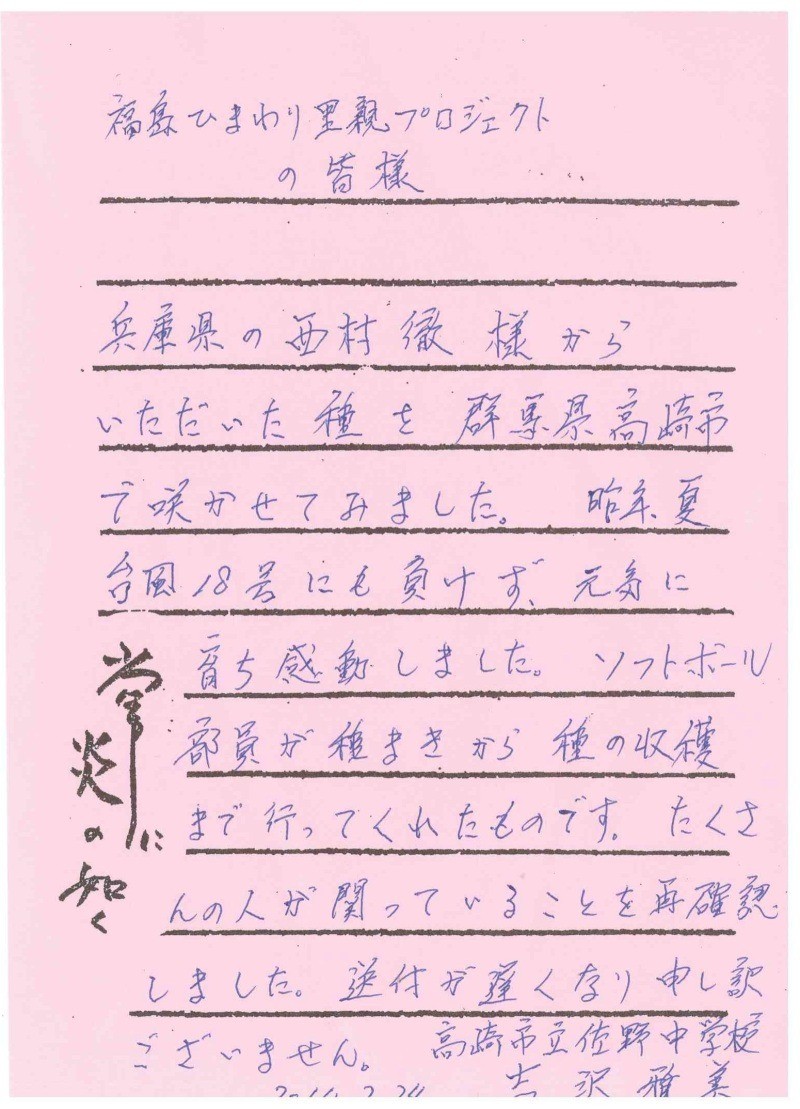 福島ひまわり里親プロジェクト
の皆様
兵庫県の西村徹様から
いただいた種を群馬県高崎市
で咲かせてみました。昨年夏
台風18号にも負けず、元気に
育ち感動しました。ソフトボール
部員が種まきから種の収穫
まで行ってくれたものです。たくさ
んの人が関っていることを再確認
しました。送付が遅くなり申し訳
ございません。高崎市立佐野中学校
吉沢雅美
常に
炎の如く